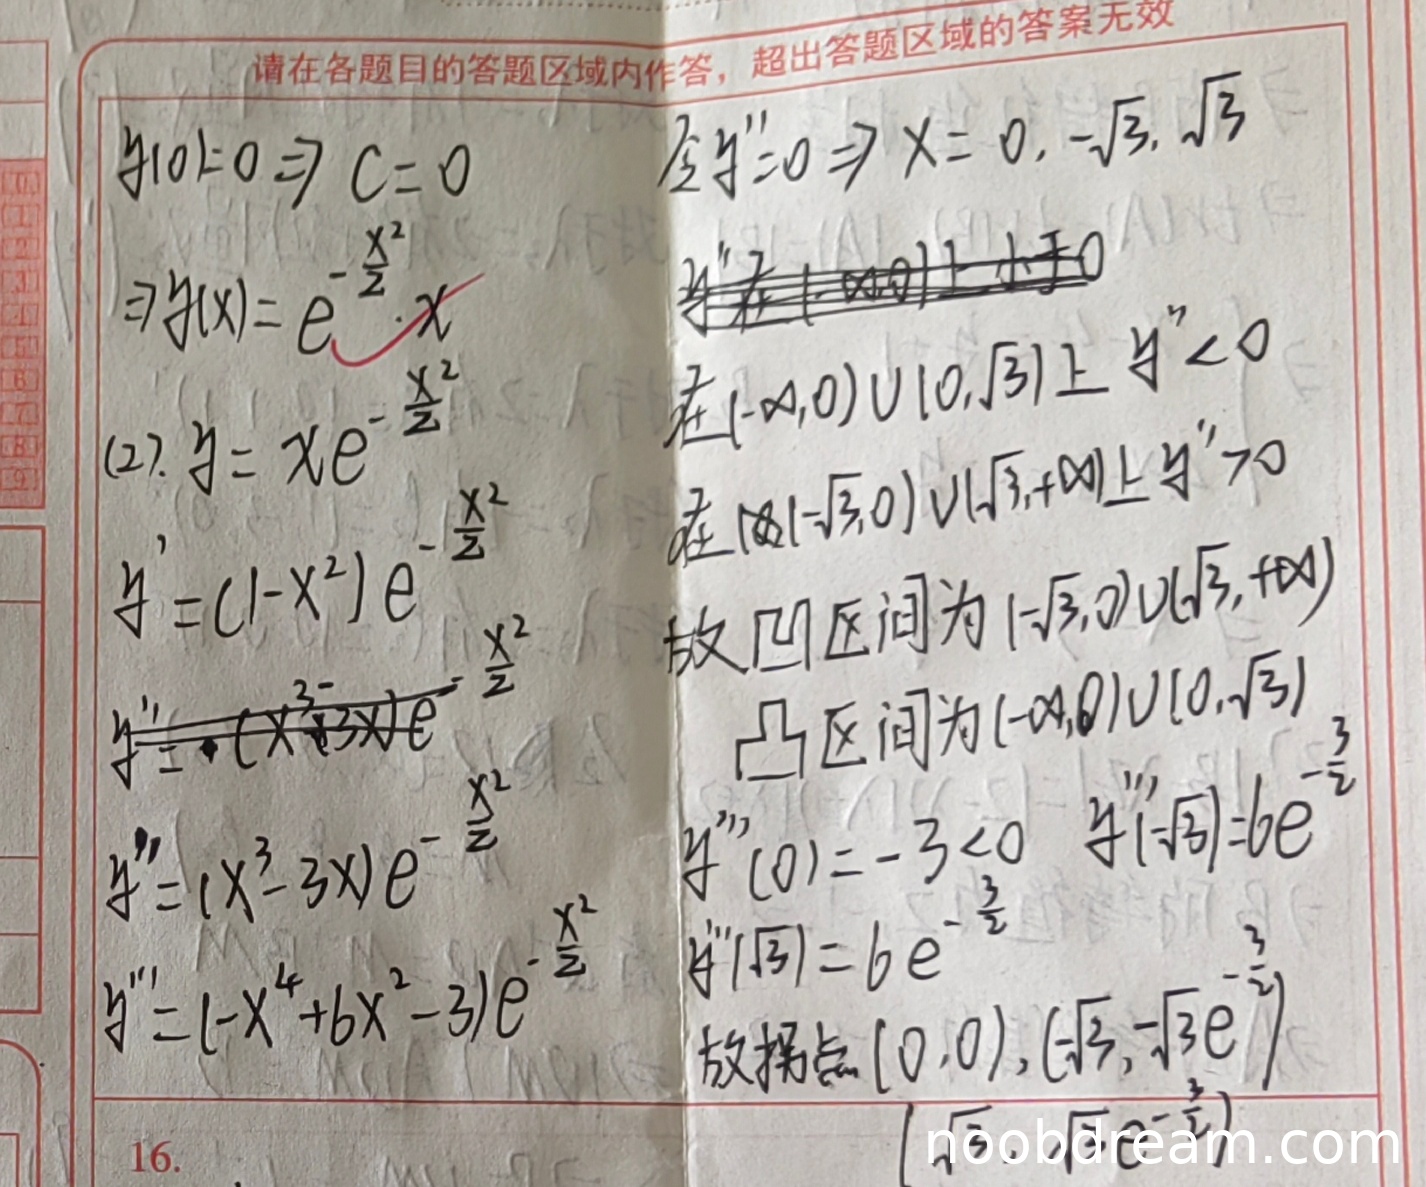 请在各题目的答题区域内作答，超出答题区域的答案无效
y(0)=0 ⇒ C=0
⇒ y(x)= e^{-x²/2}·x
(2). y= xe^{-x²/2}
y'=(1-x²)e^{-x²/2}
y''= (x³-3x)e^{-x²/2}
y''=(x³-3x)e^{-x²/2}
y'''=(-x⁴+6x²-3)e^{-x²/2}
16.
令y''=0 ⇒ x= 0, -√3, √3
y''在(-∞,0)上小于0
在(-∞,0)∪(0,√3)上 y''<0
在(-√3,0)∪(√3,+∞)上y''>0
故凹区间为(-√3,0)∪(√3,+∞)
凸区间为(-∞,0)∪(0,√3)
y'''(0)=-3<0 y'''(-√3)=6e^{-3/2}
y'''(√3)=6e^{-3/2}
故拐点(0,0),(-√3,-√3e^{-3/2})
(√3, √3e^{-3/2})
noobdream.com